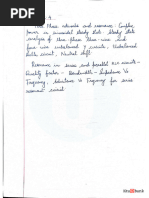 Three Phase networks and resonance - Complex
power in sinusoidal steady state Steady state
analysis of three-phase three-wire and
four-wire unbalanced Y circuits, Unbalanced
Delta circuit, Neutral shift.
Resonance in Series and Parallel RLC circuits -
Quality factor - Bandwidth - Impedance Vs
Frequency, Admittance Vs Frequency for series
resonant circuit.